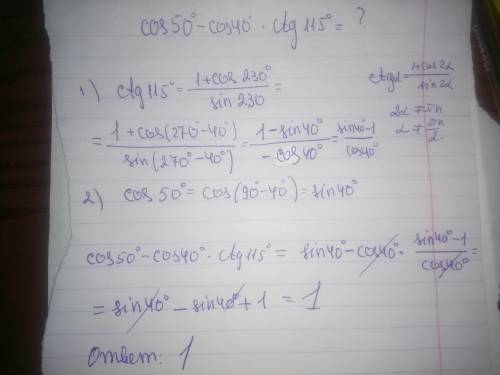 cos50° - cos40° · ctg 115° = ?
1) ctg 115° = (1 + cos 230°)/(sin 230) =
ctgα = (1+cos2α)/(sin2α)
2α ≠ πn
α ≠ πn/2
= (1 + cos(270° - 40°))/(sin(270° - 40°)) = (1 - sin40°)/(- cos40°) = (sin40° - 1)/(cos40°)
2) cos 50° = cos(90° - 40°) = sin40°
cos50° - cos40° · ctg 115° = sin40° - cos40° · (sin40° - 1)/(cos40°) =
= sin40° - sin40° + 1 = 1
Ответ: 1